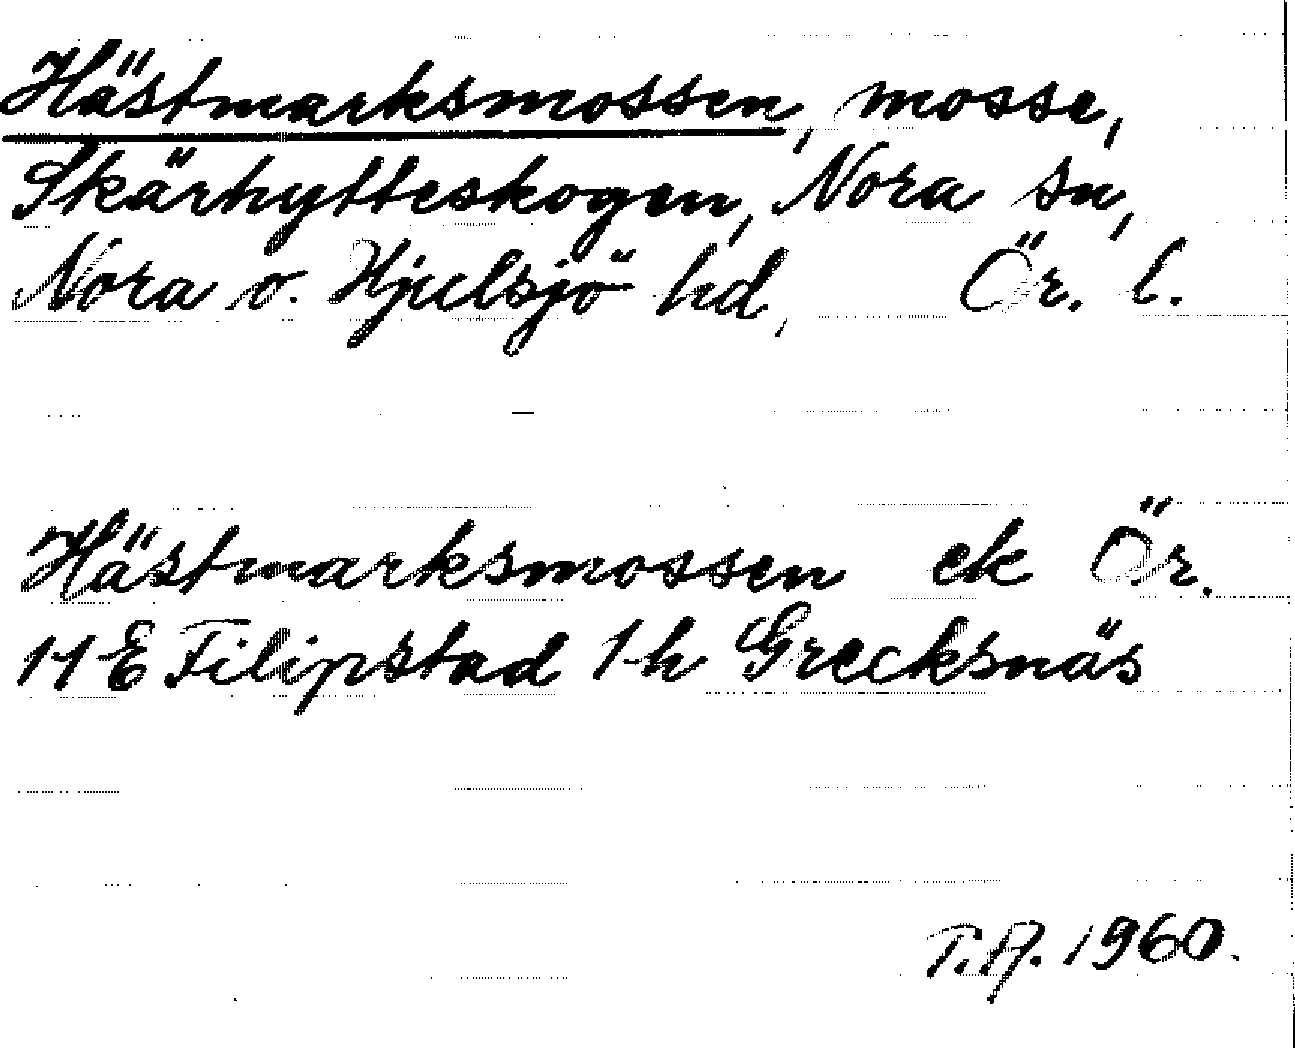 Hästmarksmossen, mosse,
Skärhytteskogen, Nora sn,
Nora o. Hjulsjö hd, Ör. l.
Hästmarksmossen ek Ör.
11E Filipstad 1h Grecksnäs
T.A. 1960.